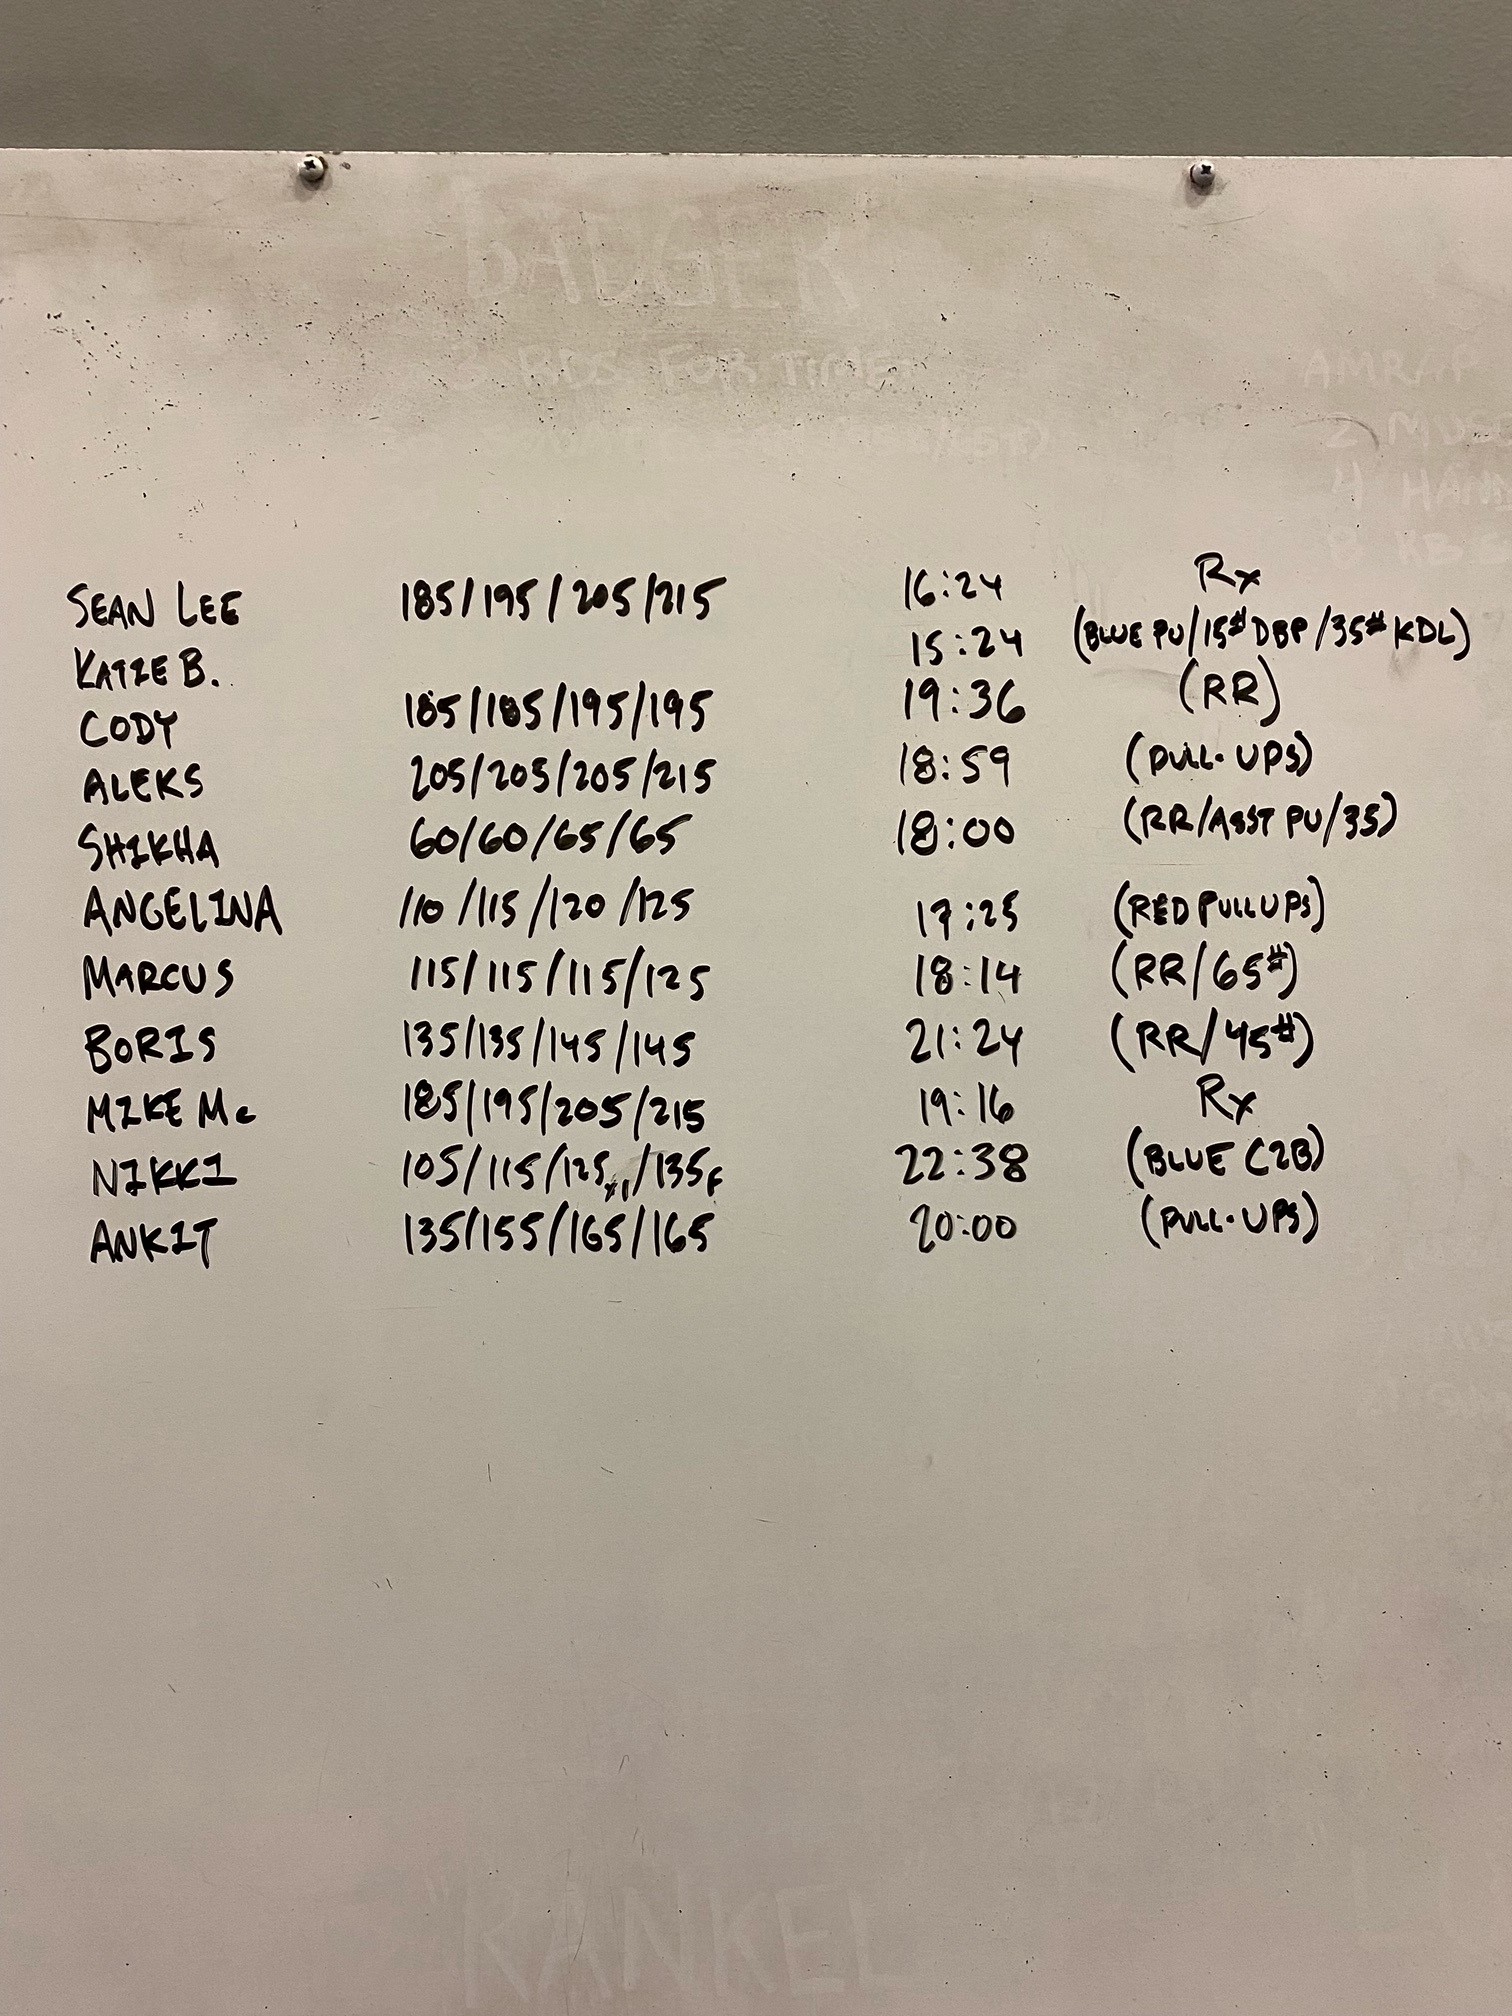 BADGER
3 RDS FOR TIME:
AMRAP
2 MUSC
4 HAND
8 KB S
SEAN LEE 185/195/205/215 16:24 Rx
KATIE B. 15:24 (BLUE PU/15# DBP/35# KDL)
CODY 185/185/195/195 19:36 (RR)
ALEKS 205/205/205/215 18:59 (PULL-UPS)
SHIKHA 60/60/65/65 18:00 (RR/ASST PU/35)
ANGELINA 110/115/120/125 17:25 (RED PULL UPS)
MARCUS 115/115/115/125 18:14 (RR/65#)
BORIS 135/135/145/145 21:24 (RR/45#)
MIKE Mc 185/195/205/215 19:16 Rx
NIKKI 105/115/125x1/135F 22:38 (BLUE C2B)
ANKIT 135/155/165/165 20:00 (PULL-UPS)
"RANKEL"